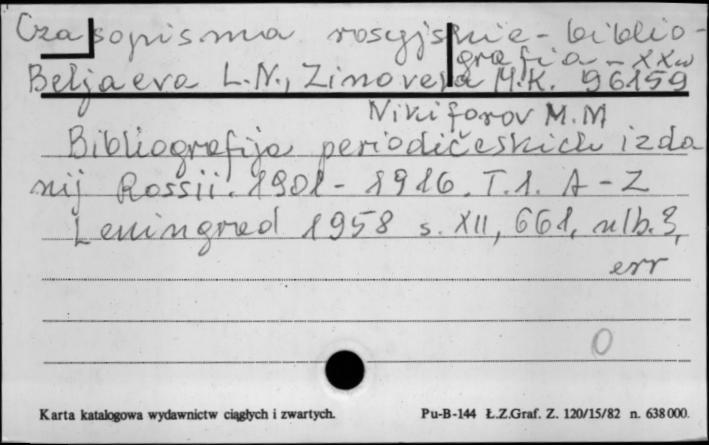 Czasopisma rosyjskie - biblio-
grafia - XX w
Beljaeva L.N., Zinoveva M.K. 96159
Nikiforov M.M
Bibliografija periodičeskich izda
nij Rossii. 1901 - 1916. T.1. A - Z
Leningrad 1958 s. XII, 661, nlb. 3,
err
0
Karta katalogowa wydawnictw ciągłych i zwartych. Pu-B-144 Ł.Z.Graf. Z. 120/15/82 n. 638000.